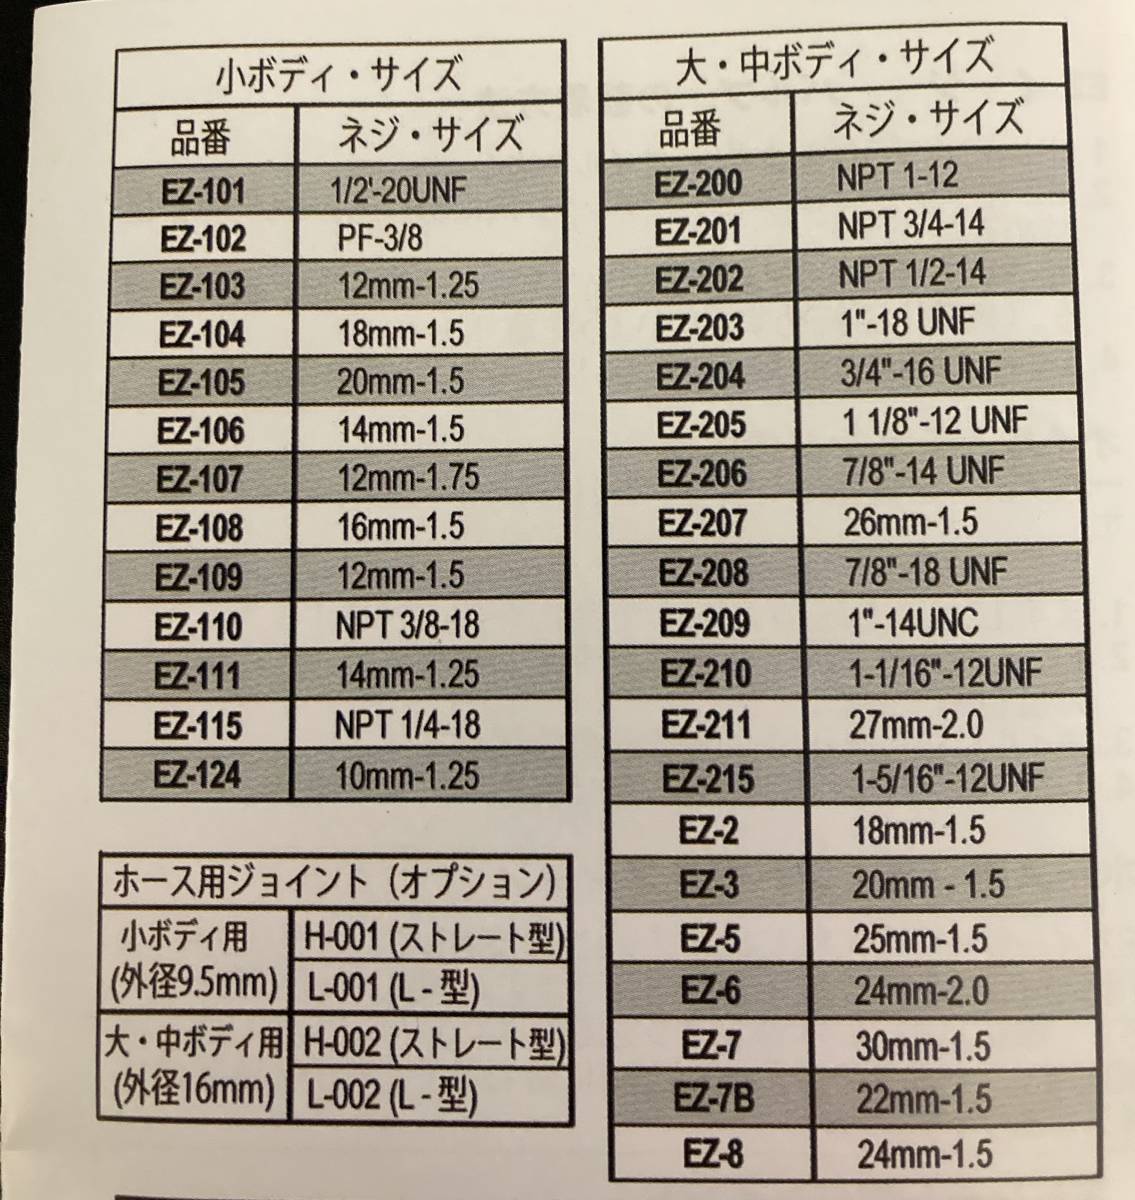 小ボディ・サイズ
品番 ネジ・サイズ
EZ-101 1/2'-20UNF
EZ-102 PF-3/8
EZ-103 12mm-1.25
EZ-104 18mm-1.5
EZ-105 20mm-1.5
EZ-106 14mm-1.5
EZ-107 12mm-1.75
EZ-108 16mm-1.5
EZ-109 12mm-1.5
EZ-110 NPT 3/8-18
EZ-111 14mm-1.25
EZ-115 NPT 1/4-18
EZ-124 10mm-1.25
ホース用ジョイント（オプション）
小ボディ用
(外径9.5mm)
H-001 (ストレート型)
L-001 (L - 型)
大・中ボディ用
(外径16mm)
H-002 (ストレート型)
L-002 (L - 型)
大・中ボディ・サイズ
品番 ネジ・サイズ
EZ-200 NPT 1-12
EZ-201 NPT 3/4-14
EZ-202 NPT 1/2-14
EZ-203 1"-18 UNF
EZ-204 3/4"-16 UNF
EZ-205 1 1/8"-12 UNF
EZ-206 7/8"-14 UNF
EZ-207 26mm-1.5
EZ-208 7/8"-18 UNF
EZ-209 1"-14UNC
EZ-210 1-1/16"-12UNF
EZ-211 27mm-2.0
EZ-215 1-5/16"-12UNF
EZ-2 18mm-1.5
EZ-3 20mm - 1.5
EZ-5 25mm-1.5
EZ-6 24mm-2.0
EZ-7 30mm-1.5
EZ-7B 22mm-1.5
EZ-8 24mm-1.5